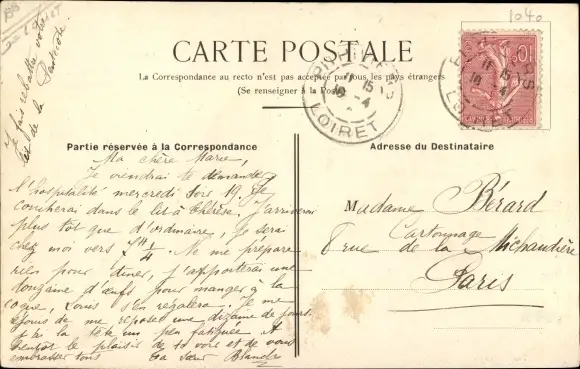 1040
CARTE POSTALE
La Correspondance au recto n'est pas acceptée par tous les pays étrangers
(Se renseigner à la Poste)
Je fais rebattre votre
las de la
PITHIVIERS
11 15
18 4
LOIRET
Partie réservée à la Correspondance
Adresse du Destinataire
Ma chère Marie,
Je viendrai te demander
l'hospitalité mercredi soir 19. Je
coucherai dans le lit à Thérèse. J'arriverai
plus tôt que d'ordinaire, je serai
chez moi vers
Ne me prépare
rien pour dîner, j'apporterai une
douzaine d'œufs pour manger à la
coque, Louis s'en régalera. Je me
réjouis de me reposer une dizaine de jours.
J'ai la tête un peu fatiguée. A
bientôt le plaisir de te voir et de vous
embrasser tous Ta sœur Blanche
Madame Bérard
Cartonnage
7 rue de la Michaudière
Paris